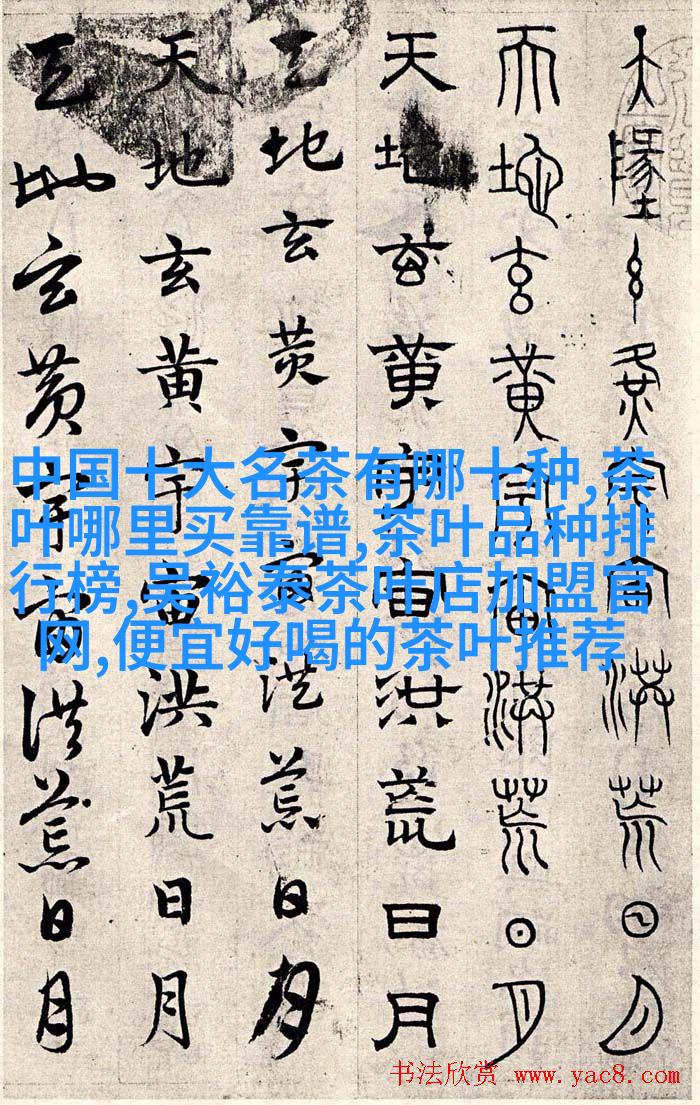 天墬玄黄宇宙洪荒日月
天地玄黄宇宙洪荒日月
天地玄黄宇宙洪荒日月
天地玄黄宇宙洪荒日月
天地玄黄宇宙洪荒日月
天地玄黄宇宙洪荒日月
中国十大名茶有哪十种,茶
叶哪里买靠谱,茶叶品种排
行榜,吴裕泰茶叶店加盟官
网,便宜好喝的茶叶推荐
书法欣赏 www.yac8.com